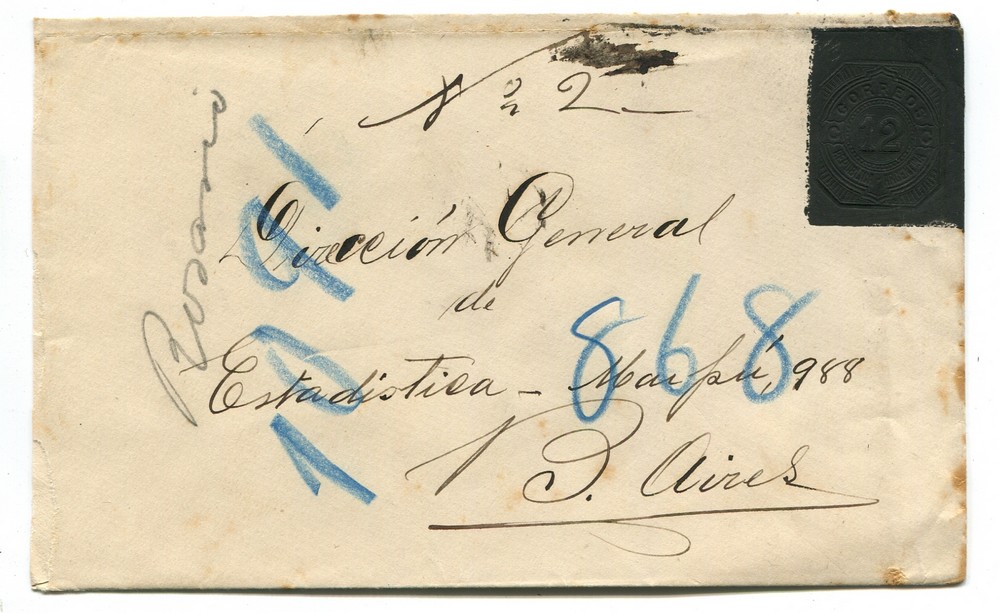 Nº 2
CORREOS
12
Dirección General
de
Estadistica - Maipú, 988
B. Aires
Rosario
868